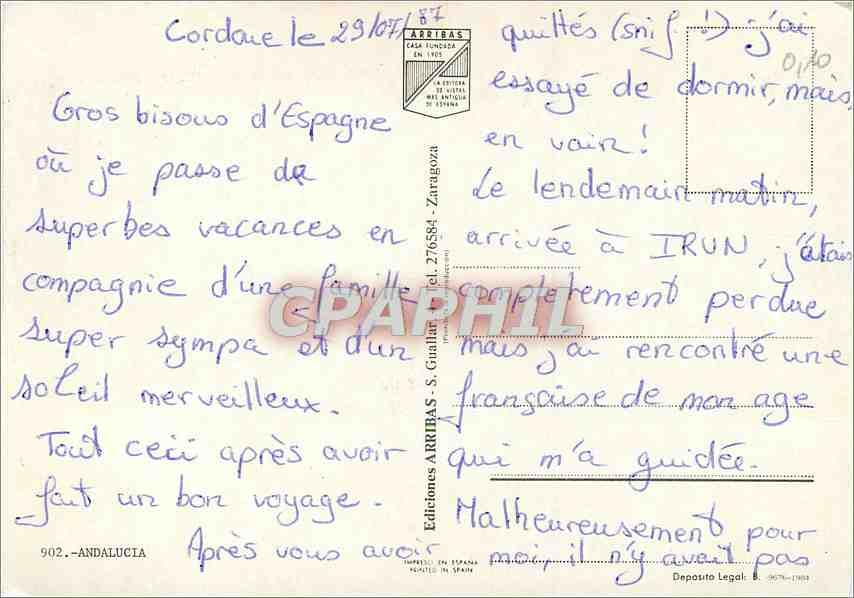 Cordoue le 29/07/87
Gros bisous d'Espagne
où je passe de
superbes vacances en
compagnie d'une famille
super sympa et d'un
soleil merveilleux.
Tout ceci après avoir
fait un bon voyage.
Après vous avoir
902.-ANDALUCIA
ARRIBAS
CASA FUNDADA
EN 1905
LA EDITORA
DE VISTAS
MAS ANTIGUA
DE ESPAÑA
Ediciones ARRIBAS - S. Guallar - Tel. 276584 - Zaragoza
IMPRESO EN ESPAÑA
PRINTED IN SPAIN
CPAPHIL
quittés (snif !) j'ai
0,10
essayé de dormir, mais,
en vain!
Le lendemain matin,
arrivée à IRUN, j'étais
completement perdue
mais j'ai rencontré une
française de mon age
qui m'a guidée.
Malheureusement pour
moi, il n'y avait pas
Deposito Legal: B. 9676-1984